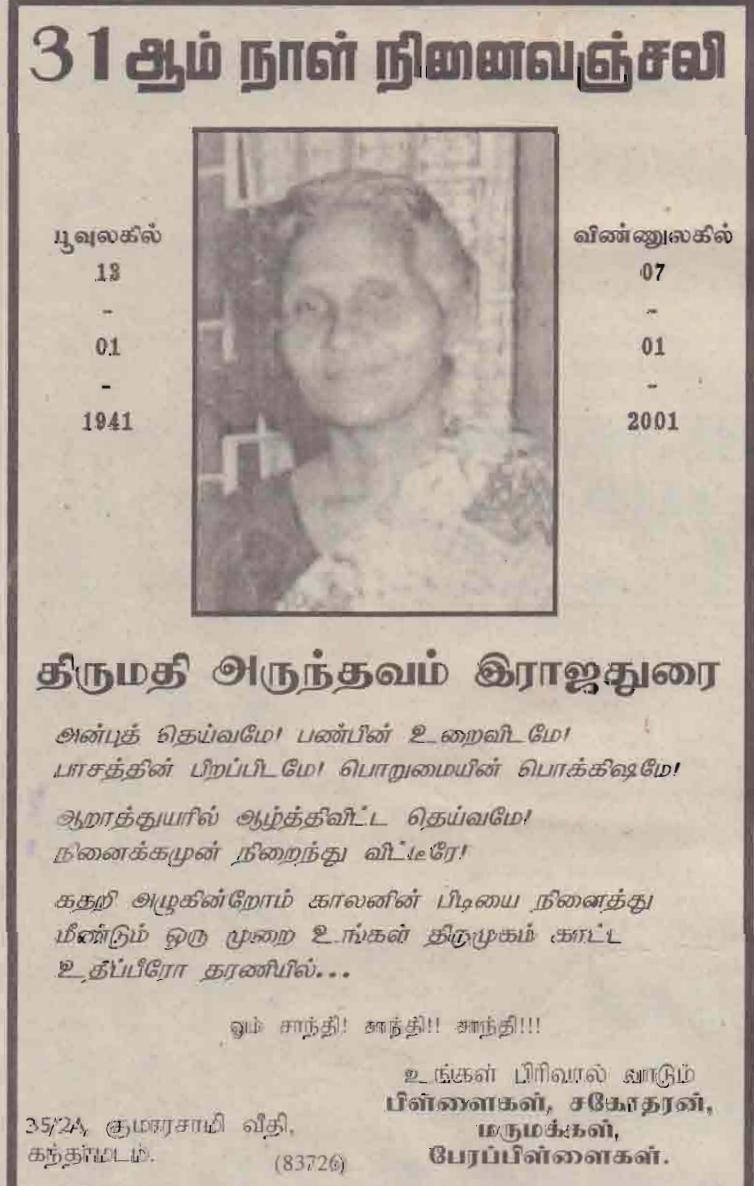 31ஆம் நாள் நினைவஞ்சலி
பூவுலகில்
13
-
01
-
1941
விண்ணுலகில்
07
-
01
-
2001
திருமதி அருந்தவம் இராஜதுரை
அன்புத் தெய்வமே! பண்பின் உறைவிடமே!
பாசத்தின் பிறப்பிடமே! பொறுமையின் பொக்கிஷமே!
ஆறாத்துயரில் ஆழ்த்திவிட்ட தெய்வமே!
நினைக்கமுன் நிறைந்து விட்டீரே!
கதறி அழுகின்றோம் காலனின் பிடியை நினைத்து
மீண்டும் ஒரு முறை உங்கள் திருமுகம் காட்ட
உதிப்பீரோ தரணியில்...
ஓம் சாந்தி! சாந்தி!! சாந்தி!!!
உங்கள் பிரிவால் வாடும்
பிள்ளைகள், சகோதரன்,
மருமக்கள்,
பேரப்பிள்ளைகள்.
35/2A, குமாரசாமி வீதி,
கந்தர்மடம்.
(83726)